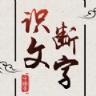 识文
断字